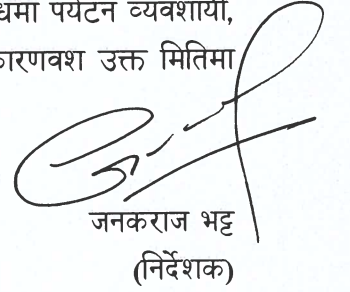 धमा पर्यटन व्यवशायी,
कारणवश उक्त मितिमा
जनकराज भट्ट
(निर्देशक)